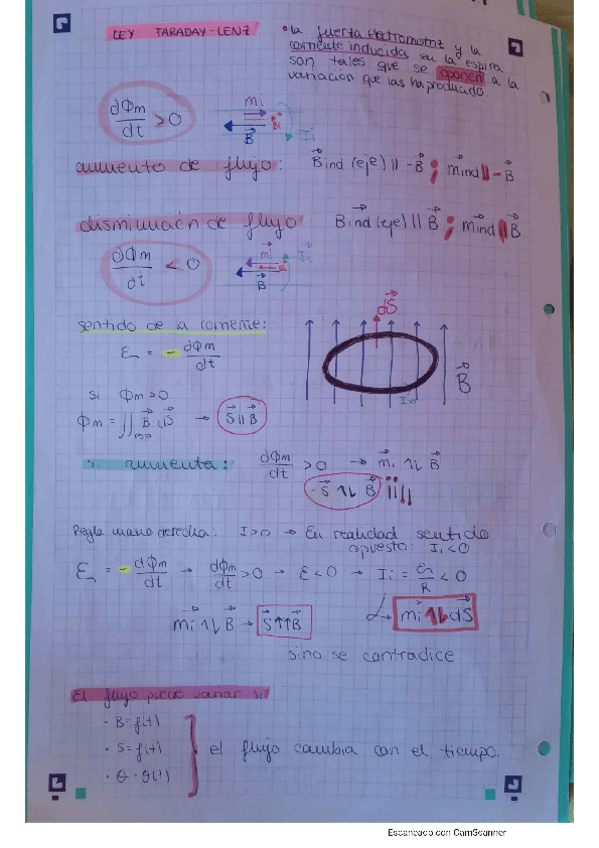 LEY FARADAY-LENZ
• la fuerza electromotriz y la
corriente inducida en la espira
son tales que se oponen a la
variación que las ha producido.
dΦm/dt > 0
mi
B
Ii
aumento de flujo: Bind (eje) || -B ; mind || -B
disminución de flujo Bind (eje) || B ; mind || B
dΦm/dt < 0
mi
Ii
B
sentido de a corriente:
ε = - dΦm/dt
dS
B
si Φm>0
Φm = ∬ B dS → S || B
si aumenta: dΦm/dt > 0 → mi ↑↓ B
S ↑↓ B
Regla mano derecha: I>0 → En realidad sentido
opuesto Ii<0
ε = - dΦm/dt → dΦm/dt > 0 → ε<0 → Ii = ε/R < 0
mi ↑↓ B → S ↑↑ B
mi ↑↓ dS
sino se contradice
El flujo puede variar si
· B = f(t)
· S = f(t)
· θ = θ(t)
el flujo cambia con el tiempo.
Escaneado con CamScanner